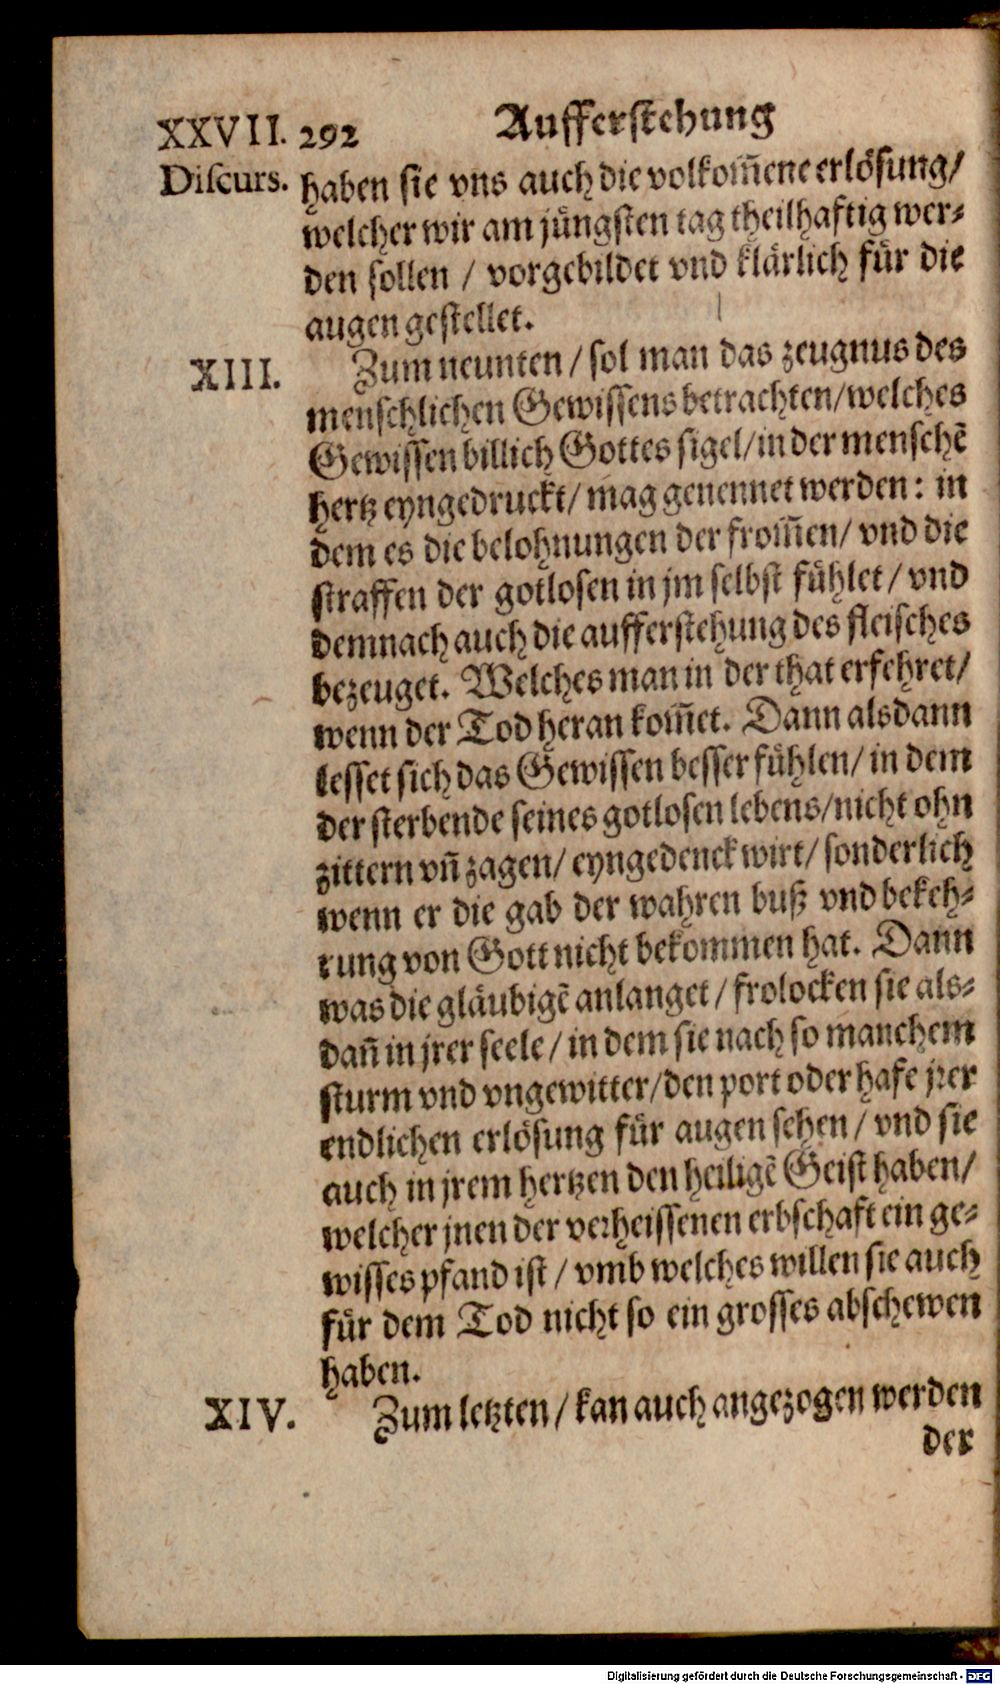 XXVII. 292 Aufferstehung
Discurs. haben sie vns auch die volkom̃ene erlösung/
welcher wir am jüngsten tag theilhaftig wer-
den sollen / vorgebildet vnd klärlich für die
augen gestellet.
XIII. Zum neunten / sol man das zeugnus des
menschlichen Gewissens betrachten/welches
Gewissen billich Gottes sigel/in der menschẽ
hertz eyngedruckt/ mag genennet werden: in
dem es die belohnungen der from̃en/ vnd die
straffen der gotlosen in jm selbst fühlet/ vnd
demnach auch die aufferstehung des fleisches
bezeuget. Welches man in der that erfehret/
wenn der Tod heran kom̃et. Dann alsdann
lesset sich das Gewissen besser fühlen/ in dem
der sterbende seines gotlosen lebens/nicht ohn
zittern vñ zagen/ eyngedenck wirt/ sonderlich
wenn er die gab der wahren buß vnd bekeh-
rung von Gott nicht bekommen hat. Dann
was die gläubigẽ anlanget / frolocken sie als-
dañ in jrer seele/ in dem sie nach so manchem
sturm vnd vngewitter/den port oder hafe jrer
endlichen erlösung für augen sehen/ vnd sie
auch in jrem hertzen den heiligẽ Geist haben/
welcher jnen der verheissenen erbschaft ein ge-
wisses pfand ist / vmb welches willen sie auch
für dem Tod nicht so ein grosses abschewen
haben.
XIV. Zum letzten / kan auch angezogen werden
der
Digitalisierung gefördert durch die Deutsche Forschungsgemeinschaft - DFG